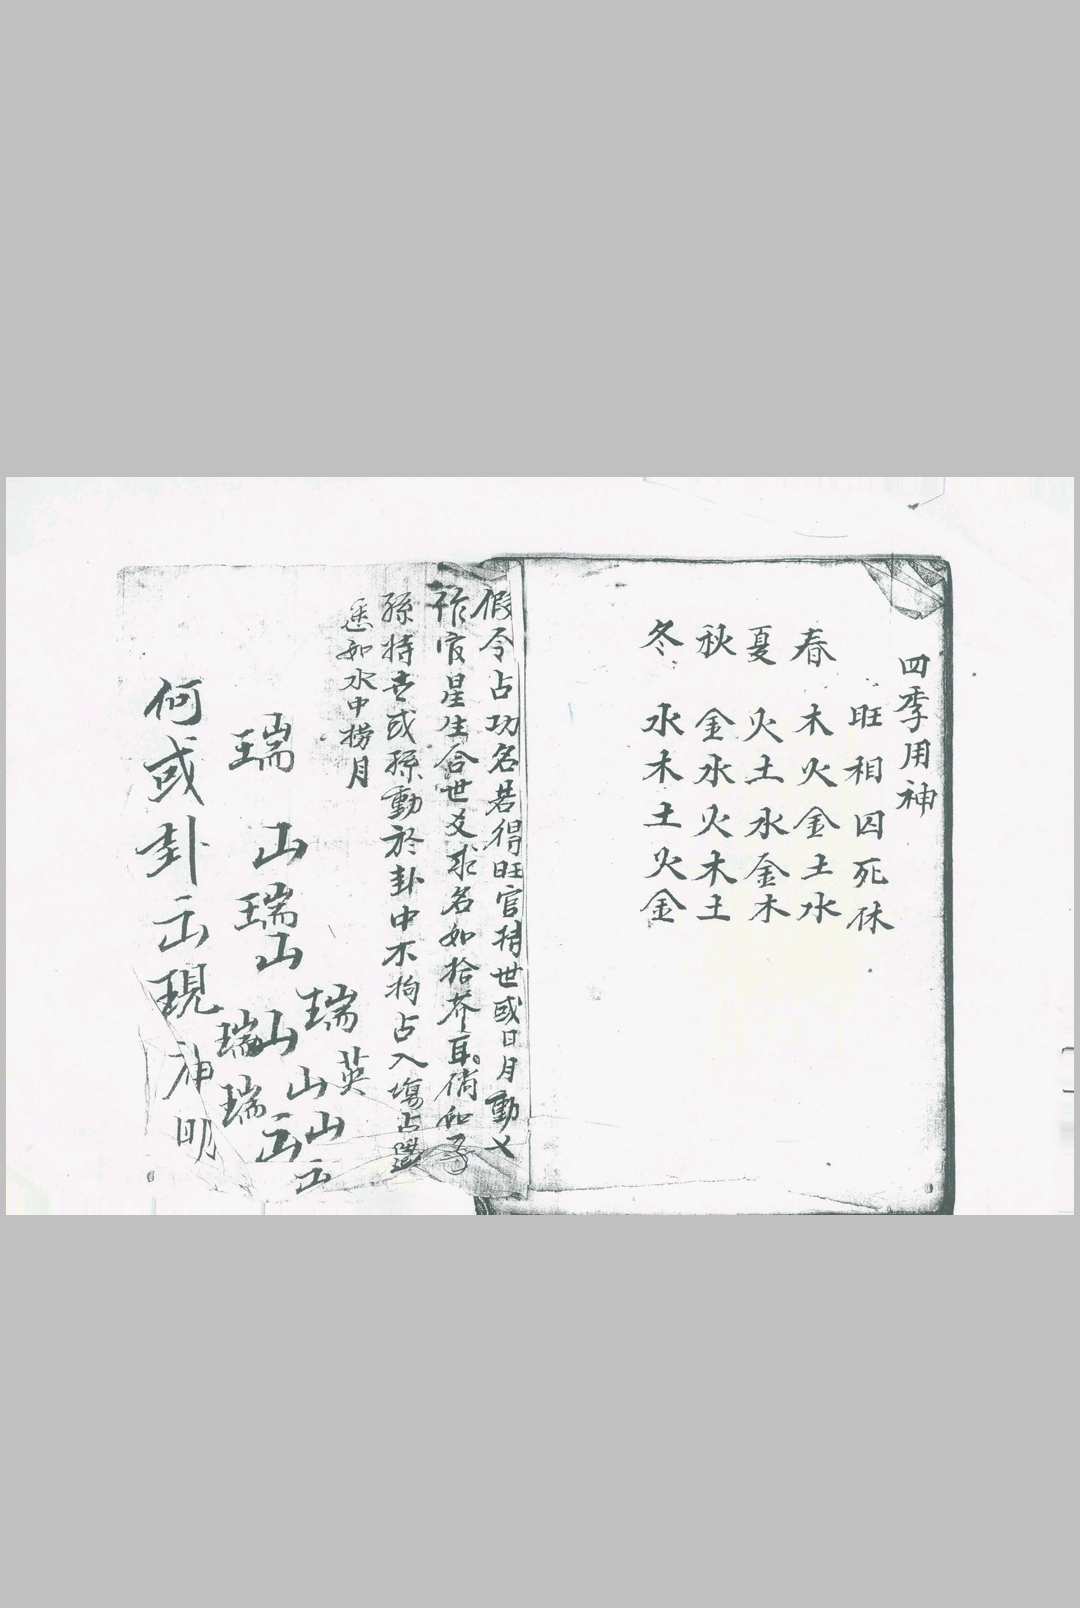 四季用神
旺相囚死休
春 木火金土水
夏 火土水金木
秋 金水火木土
冬 水木土火金
假令占功名若得旺官持世或日月動爻
作官星生合世爻求名如拾芥耳倘如子
孫持世或孫動於卦中不拘占入場占選
恁如水中撈月
瑞英
瑞山瑞山
山山
瑞瑞
何或卦
現神明